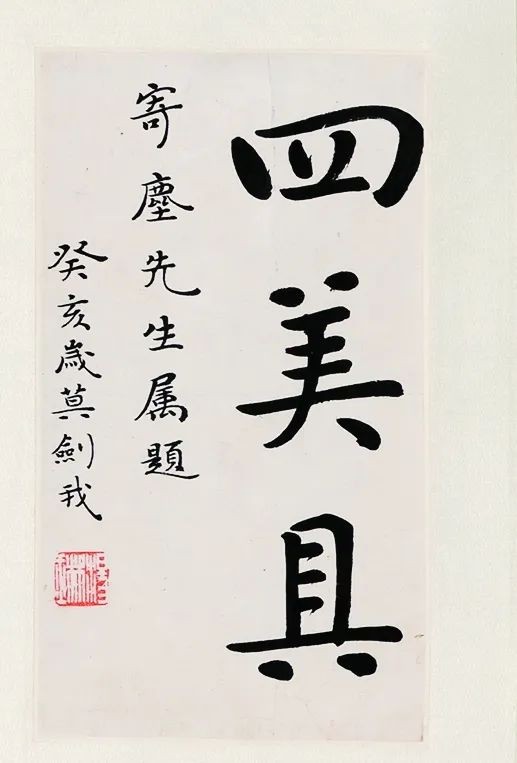 四美具
寄塵先生属題
癸亥歲莫劍我